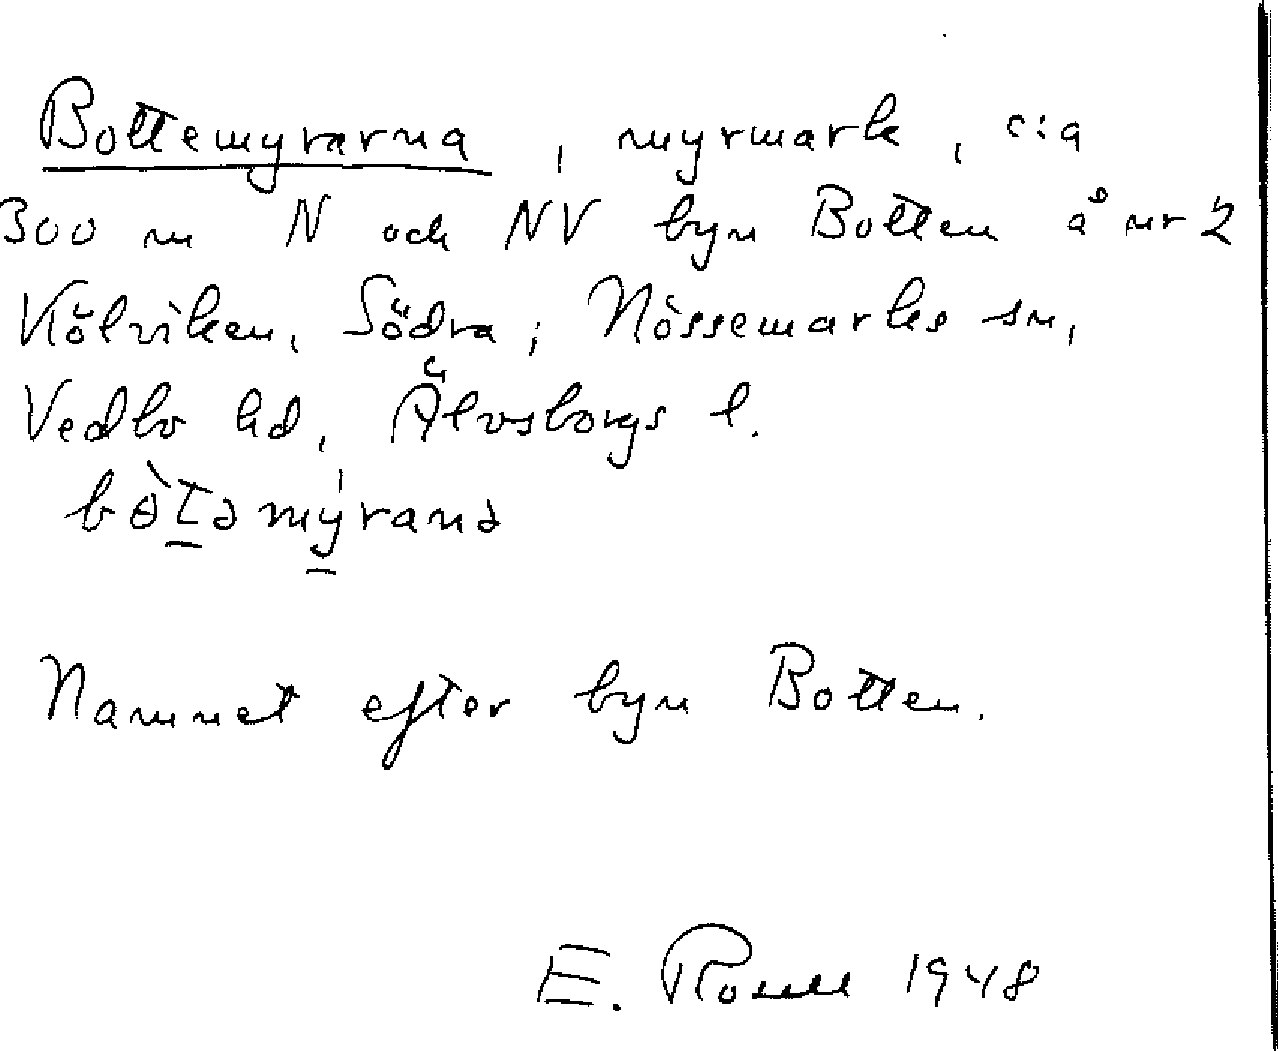 Bottemyrarna, myrmark, c:a
300 m N och NV byn Botten å nr 2
Kölviken, Södra, Nössemarks sn,
Vedbo hd, Älvsborgs l.
Namnet efter byn Botten.
E. 1948